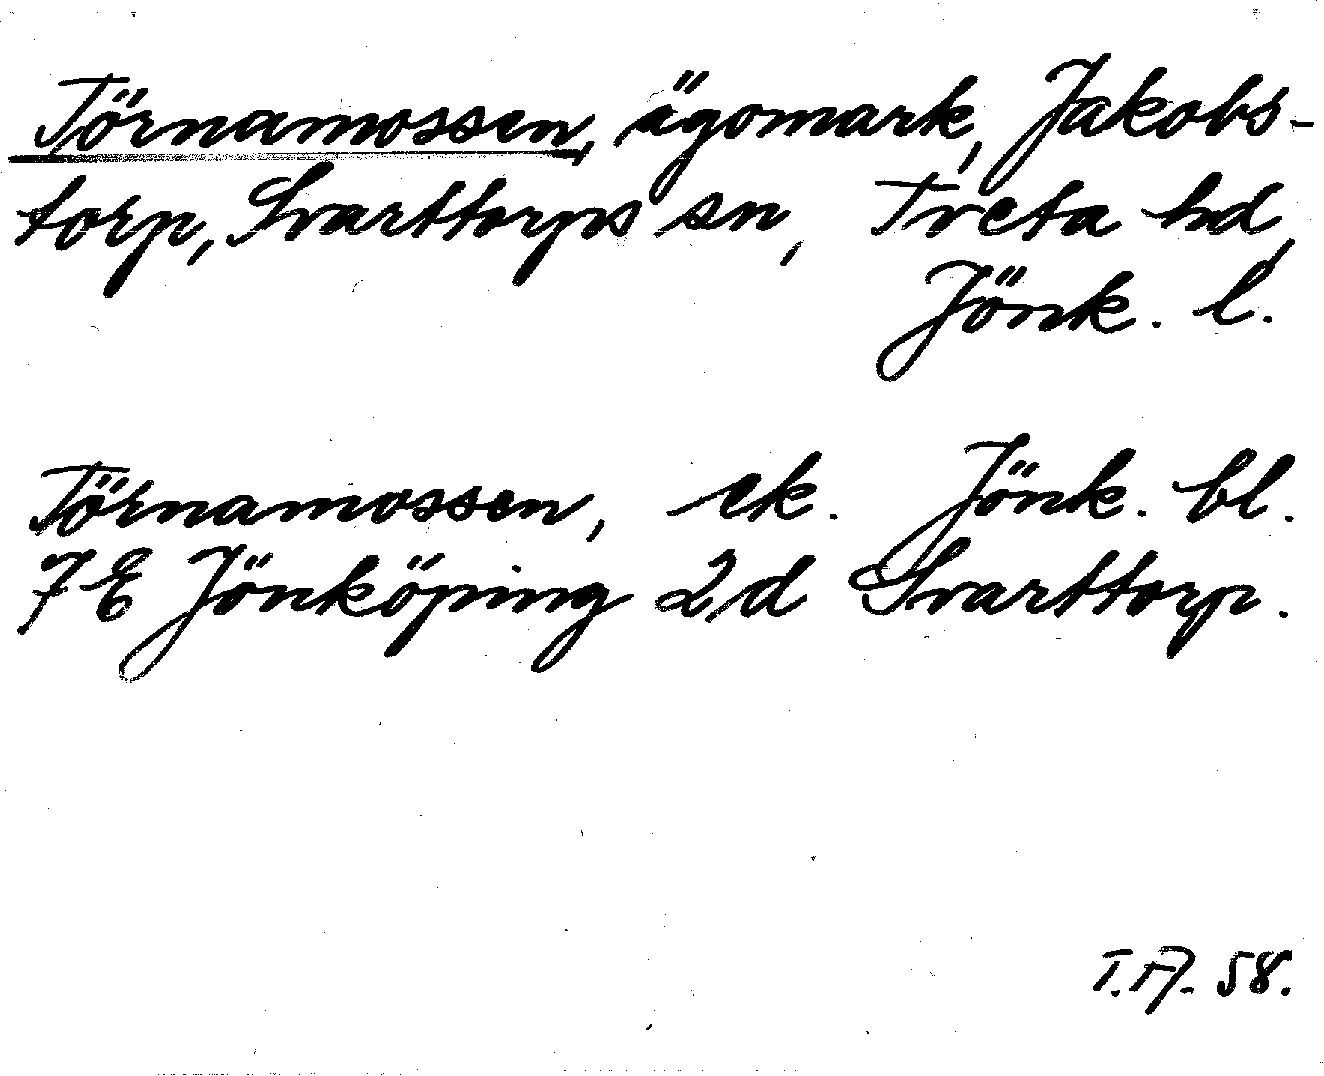 Törnamossen, ägomark, Jakobs-
torp, Svarttorps sn, Tveta hd,
Jönk. l.
Törnamossen, ek. Jönk. bl.
7E Jönköping 2d Svarttorp.
58.